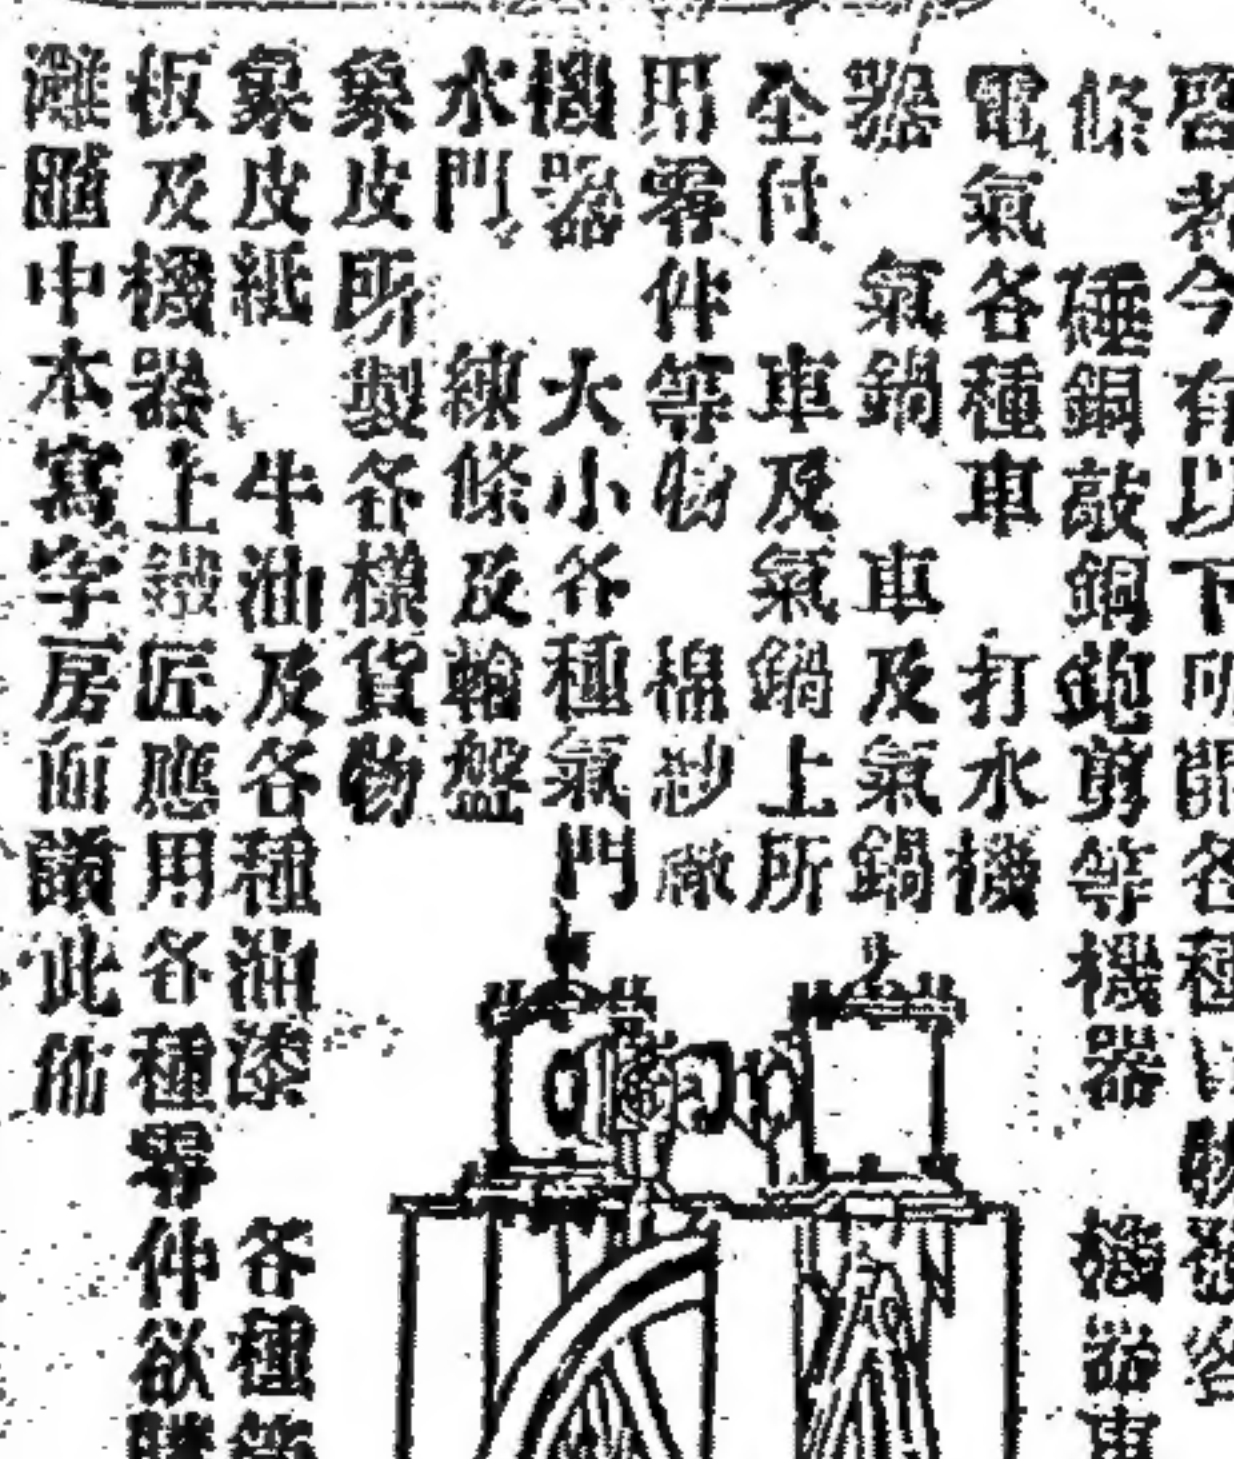 啓者今有以下所開各種
條　硾銅敲銅鉋剪等機器　機器車
電氣各種車　打水機
器　氣鍋　車及氣鍋
全付　車及氣鍋上所
用零件等物　棉紗廠
機器　大小各種氣門
水門　練條及輪盤
象皮所製各樣貨物
象皮紙　牛油及各種油漆　各種
板及機器上匠應用各種零件欲
灘中本寫字房面議此佈